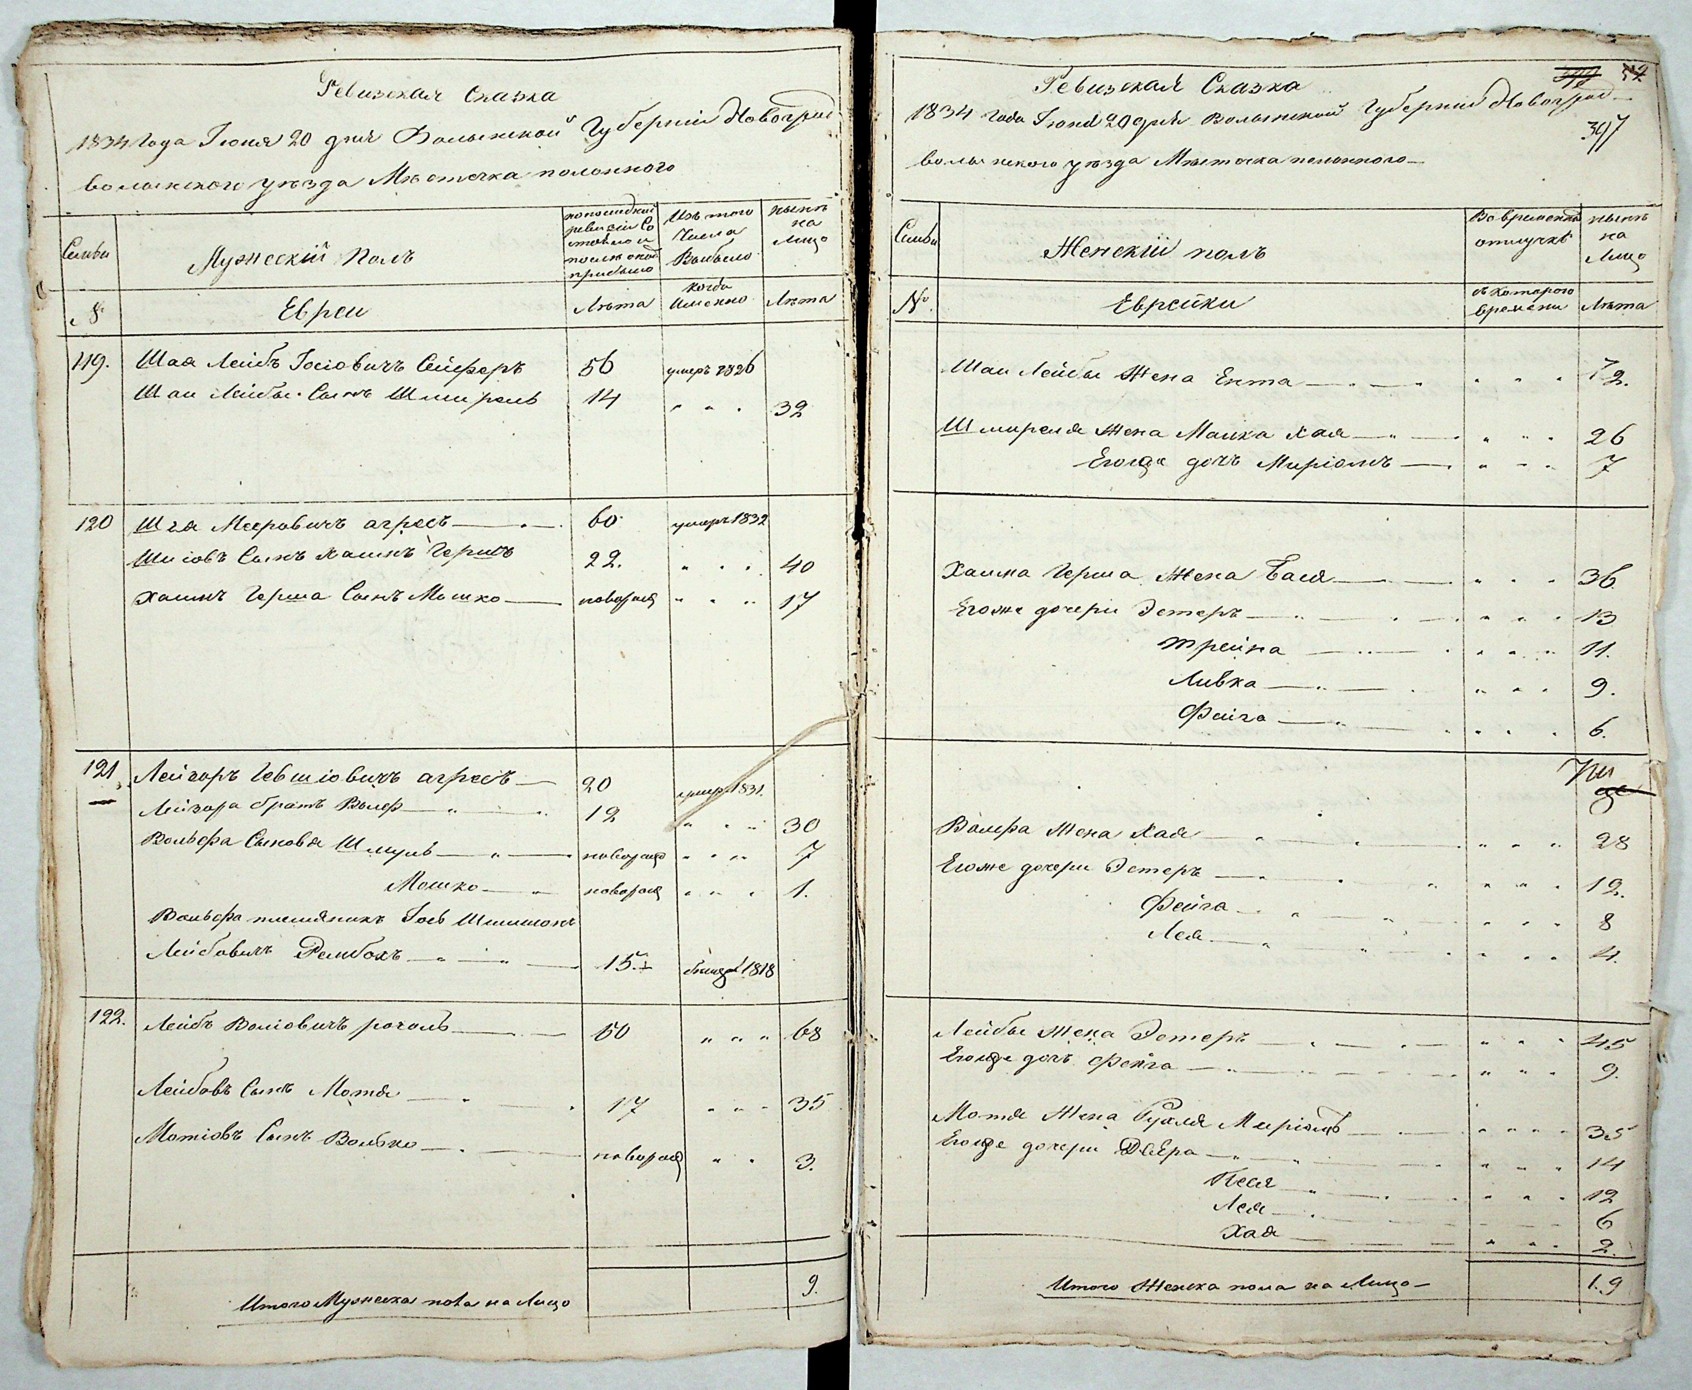 Ревизская Сказка
1834 Года Июня 20 дня Волынской Губерніи Новоград
волынского уѣзда Мѣстечка полонного
Семьи
Мужескій Полъ
по последней
ревизіи Со
стояло и
после оной
прибыло
Изъ того
Числа
Выбыло
нынѣ
на
Лицо
№
Евреи
Лѣта
когда
именно
Лѣта
119. Шая Лейбъ Іосіовичъ Сейферъ 56 умеръ 1826
Шаи Лейбы Сынъ Шмирель 14 " " " 32
120 Шая Мееровичъ агресъ 60 умеръ 1832
Шаіовъ Сынъ Хаимъ Гершъ 22. " " " 40
Хаимъ Герша Сынъ Мошко новорож " " " 17
121. Лейзоръ Гевшіовичъ агресъ 20 умер. 1831.
Лейзора братъ Вольф 12 " " " 30
Вольфа Сыновья Шмуль новорож " " " 7
Мошко новорож " " " 1.
Вольфа племяникъ Іось Шлиомонъ
Лейбовичъ Рамбахъ 15. 1818
122. Лейбъ Воліовичъ рогаль 50 " " " 68
Лейбовъ Сынъ Мотя 17 " " " 35
Мотіовъ Сынъ Волько новорож " " 3.
Итого Мужеска пола на Лицо 9.
Ревизская Сказка
52
1834 года Іюня 20 дня Волынской Губерніи Новоград
397
волынского уѣзда Мѣстечка полонного
Семьи
Женскій полъ
Во временной
отлучкѣ
нынѣ
на
Лицо
№
Еврейки
съ которого
времени
Лѣта
Шаи Лейбы Жена Ента " " " 72.
Шмиреля Жена Малка Хая " " " 26
Егожде дочь Миріамъ " " " 7
Хаима Герша Жена Бася " " " 36.
Егоже дочери Эстеръ " " " 13
Трейна " " " 11.
Ливка " " " 9.
Фейга " " " 6.
Вольфа Жена Хая " " " 28
Егоже дочери Эстеръ " " " 12.
Фейга " " " 8
Лея " " " 4.
Лейбы Жена Эстеръ " " " 45
Егожде дочь Фейга " " " 9.
Мотя Жена Рухля Миріамъ " " " 35
Егожде дочери Двера " " " 14
Песя " " " 12
Лея 6
Хая " " " 2.
Итого Женска пола на Лицо 19